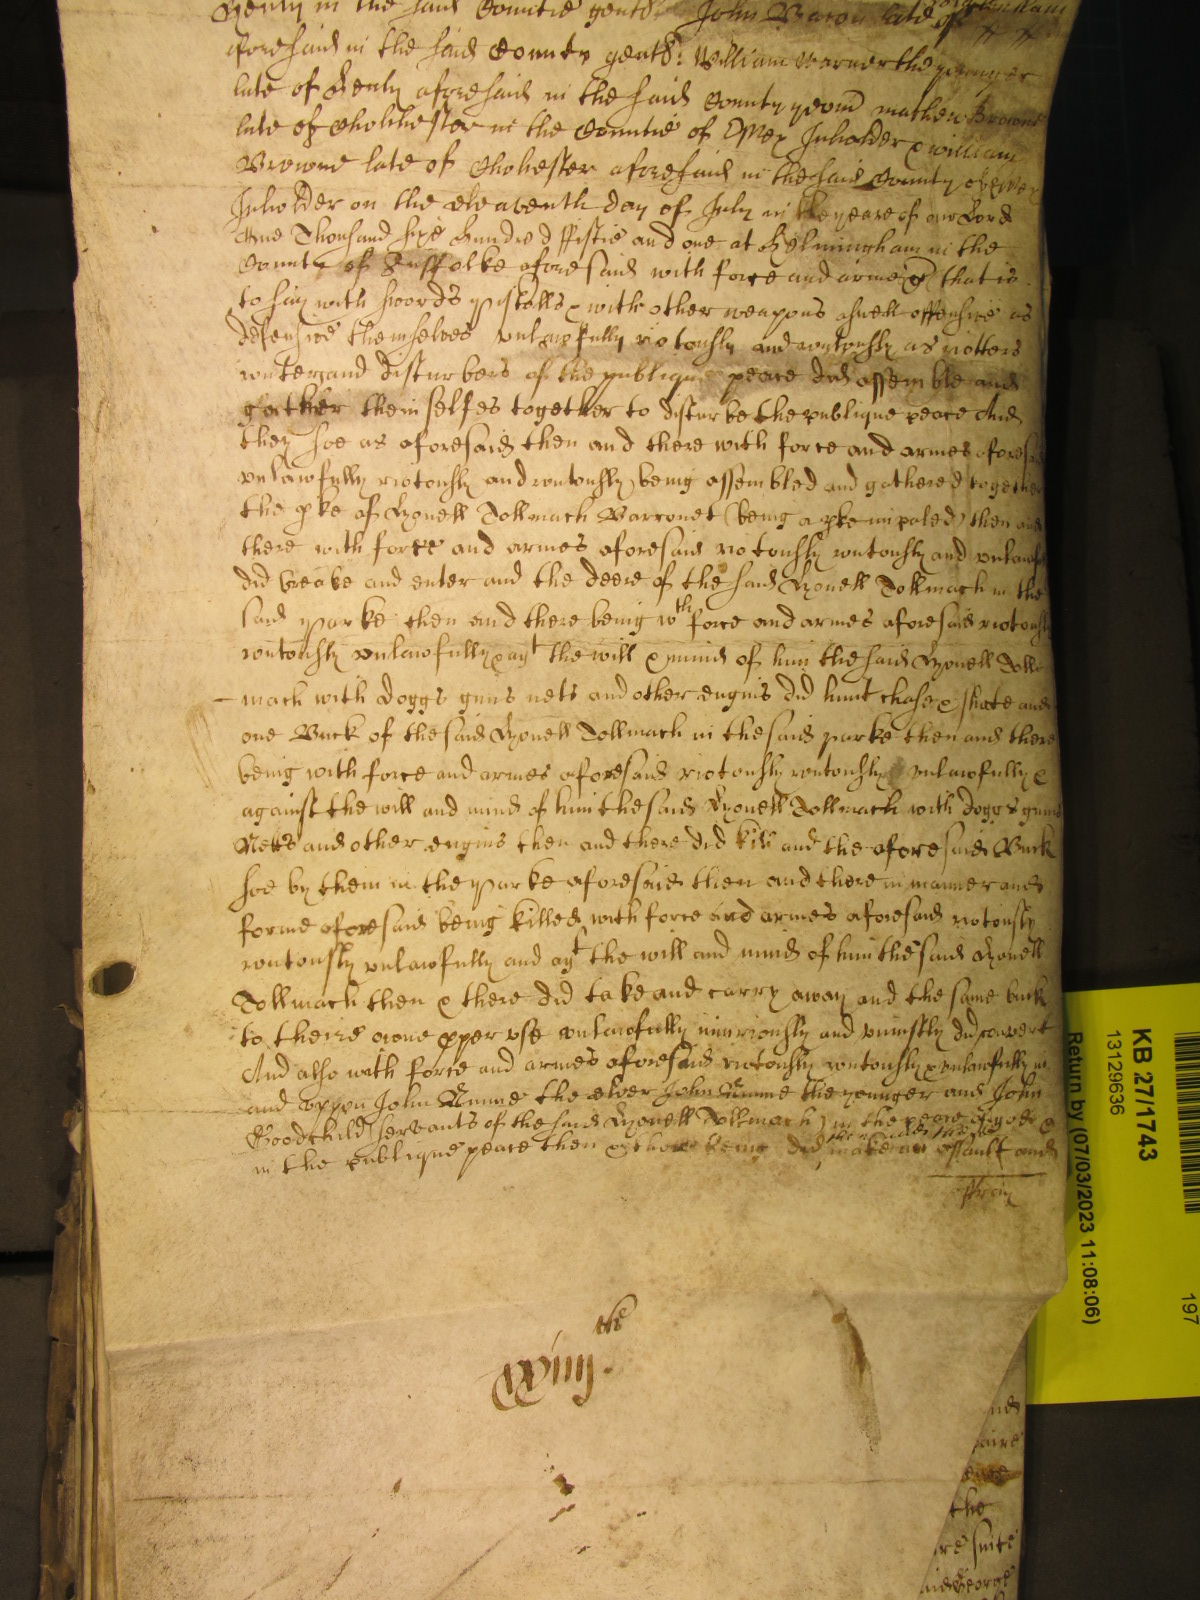 Henly in the said Countie gent: John Bacon late of
aforesaid in the said County gent: William Warner the younger
late of Henly aforesaid in the said County yeom mathew Browne
late of Cholchester in the Countie of Essex Inholder & william
Browne late of Cholchester aforesaid in the said County of Essex
Inholder on the eleaventh day of July in the yeare of our Lord
One Thousand sixe hundred ffiftie and one at Helmingham in the
County of Suffolke aforesaid with force and armes that is
to say with swords pistolls & with other weapons aswell offensive as
defensive themselves unlawfully riotously and routously as riotters
routers and disturbers of the publique peace did assemble and
gather themselfes together to disturbe the publique peace And
they soe as aforesaid then and there with force and armes aforesaid
unlawfully riotously and routously being assembled and gathered together
the pke of Lyonell Tollmach Barronet (being a pke impaled) then and
there with force and armes aforesaid riotously routously and unlawfully
did breake and enter and the deere of the said Lyonell Tollmach in the
said parke then and there being wth force and armes aforesaid riotously
routously unlawfully & agt the will & mind of him the said Lyonell Tolle
- mach with doggs guns nets and other engins did hunt chase & shute and
one Buck of the said Lyonell Tollmach in the said parke then and there
being with force and armes aforesaid riotously routously unlawfully &
against the will and mind of him the said Lyonell Tollmach with doggs gunns
Netts and other engins then and there did kill and the aforesaid Buck
soe by them in the parke aforesaid then and there in manner and
forme aforesaid being killed with force and armes aforesaid riotously
routously unlawfully and agt the will and mind of him the said Lyonell
Tollmach then & there did take and carry away and the same buck
to theire owne pper use unlawfully iniuriously and uniustly did convert
And also with force and armes aforesaid riotously routously & unlawfully in
and uppon John Nunne the elder John Nunne the younger and John
Goodchild servants of the said Lyonell Tollmach in the peace of god &
in the publique peace then & there being did make an assault and
affray
the
Witt
and
the
suite
George
KB 27/1743
13129636
Return by (07/03/2023 11:08:06)
197